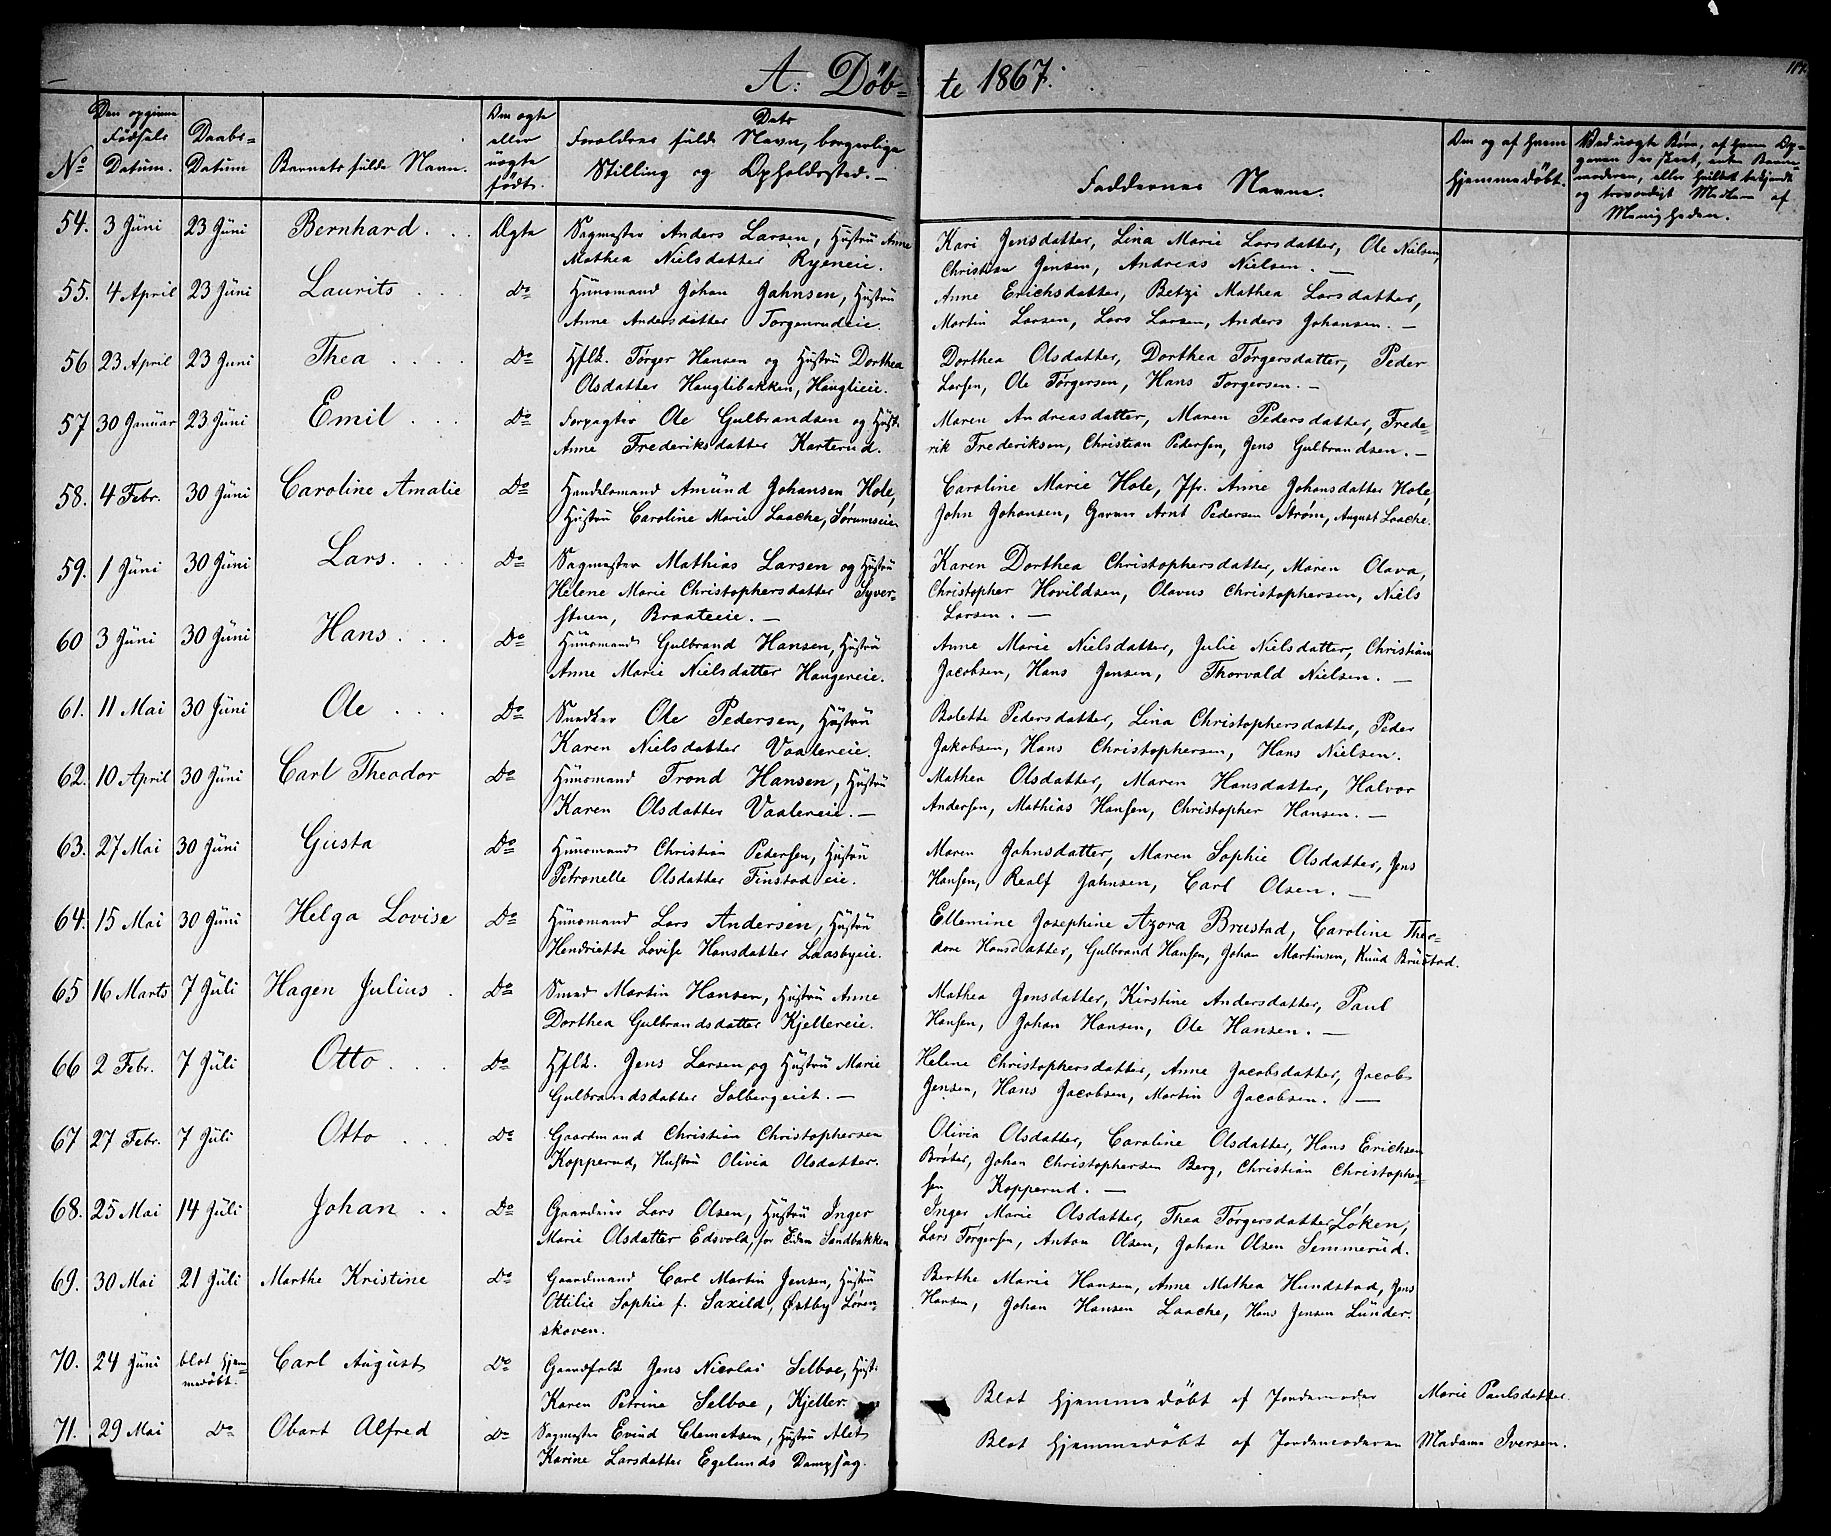 A: Døb- te 1867.
No
Den opgivne Fødsels Datum.
Daabs- Datum
Barnets fulde Navn.
Om ægte eller uægte født.
Dets Forældres fulde Navn, borgerlige Stilling og Opholdssted.
Faddernes Navne.
Om og af hvem hjemmedøbt.
Ved uægte Børn, af hvem Op-
54. 3 Juni 23 Juni Bernhard Ægte Sagmester Anders Larsen, Hustru Anne Kari Jensdatter, Lina Marie Larsdatter, Ole Nielsen,
Mathea Nielsdatter Ryeneie. Christian Jensen, Andreas Nielsen.
55. 4 April 23 Juni Laurits Do Huusmand Johan Jahnsen, Hustru Anne Erichsdatter, Betzi Mathea Larsdatter,
Anne Andersdatter Torgenrudeie. Martin Larsen, Lars Larsen, Anders Johansen.
56 23 April 23 Juni Thea Do Hflk. Tørger Hansen og Hustru Dorthea Dorthea Olsdatter, Dorthea Tørgersdatter, Peder
Olsdatter Hauglibakken, Hauglieie. Larsen, Ole Tørgersen, Hans Torgersen.
57 30 Januar 23 Juni Emil Do Forpagter Ole Gulbrandsen og Hust. Maren Andreasdatter, Maren Pedersdatter, Frede-
Anne Frederiksdatter Karterud. rik Frederiksen, Christian Pedersen, Jens Gulbrandsen.
58. 4 Febr. 30 Juni Caroline Amalie Do Handelsmand Amund Johansen Hole, Caroline Marie Hole, Jfr. Anne Johansdatter Hole,
Hustru Caroline Marie Laache, Sørumseie John Johansen, Garver Arnt Pedersen Strøm, August Laache.
59. 1 Juni 30 Juni Lars. Do Sagmester Mathias Larsen og Hustru Karen Dorthea Christophersdatter, Maren Olava,
Helene Marie Christophersdatter Syver- Christopher Hovildsen, Olavus Christophersen, Niels
stuen, Braateeie. Larsen.
60 3 Juni 30 Juni Hans Do Huusmand Gulbrand Hansen, Hustru Anne Marie Nielsdatter, Julie Nielsdatter, Christian
Anne Marie Nielsdatter Haugereie. Jacobsen, Hans Jensen, Thorvald Nielsen.
61. 11 Mai 30 Juni Ole Do Snedker Ole Pedersen, Hustru Bolette Pedersdatter, Lina Christophersdatter, Peder
Karen Nielsdatter Vaalereie. Jakobsen, Hans Christophersen, Hans Nielsen.
62. 10 April 30 Juni Carl Theodor Do Huusmand Trond Hansen, Hustru Mathea Olsdatter, Maren Hansdatter, Halvor
Karen Olsdatter Vaalereie. Andersen, Mathias Hansen, Christopher Hansen.
63. 27 Mai 30 Juni Gusta Do Huusmand Christian Pedersen, Hustru Maren Johnsdatter, Maren Sophie Olsdatter, Jens
Petronelle Olsdatter Finstadeie. Hansen, Realf Jahnsen, Carl Olsen.
64. 15 Mai 30 Juni Helga Lovise Do Huusmand Lars Andersen, Hustru Ellemine Josephine Azora Brustad, Caroline Theo-
Hendriette Lovise Hansdatter Laasbyeie. dore Hansdatter, Gulbrand Hansen, Johan Martinsen, Knud Brustad.
65 16 Marts 7 Juli Hagen Julius Do Smed Martin Hansen, Hustru Anne Mathea Jensdatter, Kirstine Andersdatter, Paul
Dorthea Gulbrandsdatter Kjellereie. Hansen, Johan Hansen, Ole Hansen.
66 2 Febr. 7 Juli Otto Do Hflk. Jens Larsen og Hustru Marie Helene Christophersdatter, Anne Jacobsdatter, Jacob
Gulbrandsdatter Solbergeiet. Jensen, Hans Jacobsen, Martin Jacobsen.
67 27 Febr. 7 Juli Otto Do Gaardmand Christian Christophersen Olivia Olsdatter, Caroline Olsdatter, Hans Erichsen
Kopperud, Hustru Olivia Olsdatter. Bråter, Johan Christophersen Berg, Christian Christopher-
sen Kopperud.
68. 25 Mai 14 Juli Johan Do Gaardeier Lars Olsen, Hustru Inger Inger Marie Olsdatter, Thea Tørgersdatter Løken,
Marie Olsdatter Edsvold, for Tiden Sandbakken Lars Tørgersen, Anton Olsen, Johan Olsen Semmerud.
69. 30 Mai 21 Juli Marthe Kristine Do Gaardmand Carl Martin Jensen, Hustru Berthe Marie Hansen, Anne Mathea Hundstad, Jens
Ottilie Sophie f. Saxild, Østby Løren- Hansen, Johan Hansen Laache, Hans Jensen Lunder.
skoven.
70. 24 Juni blot hjem- medøbt. Carl August Do Gaardfolk Jens Nicolai Selboe, Hust.
Karen Petrine Selboe, Kjeller. Blot hjemmedøbt af Jordemoder Marie Paulsdatter.
71. 29 Mai Do Obart Alfred Do Sagmester Evind Clemetsen, Hustru Alet
Karine Larsdatter Egelunds Dampsag. Blot hjemmedøbt af Jordemoderen Madame Iversen.